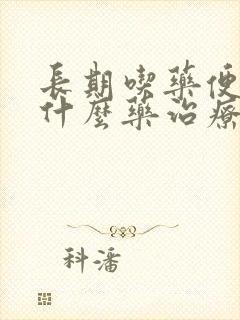 長期喫藥便
什麼藥治療
科潘